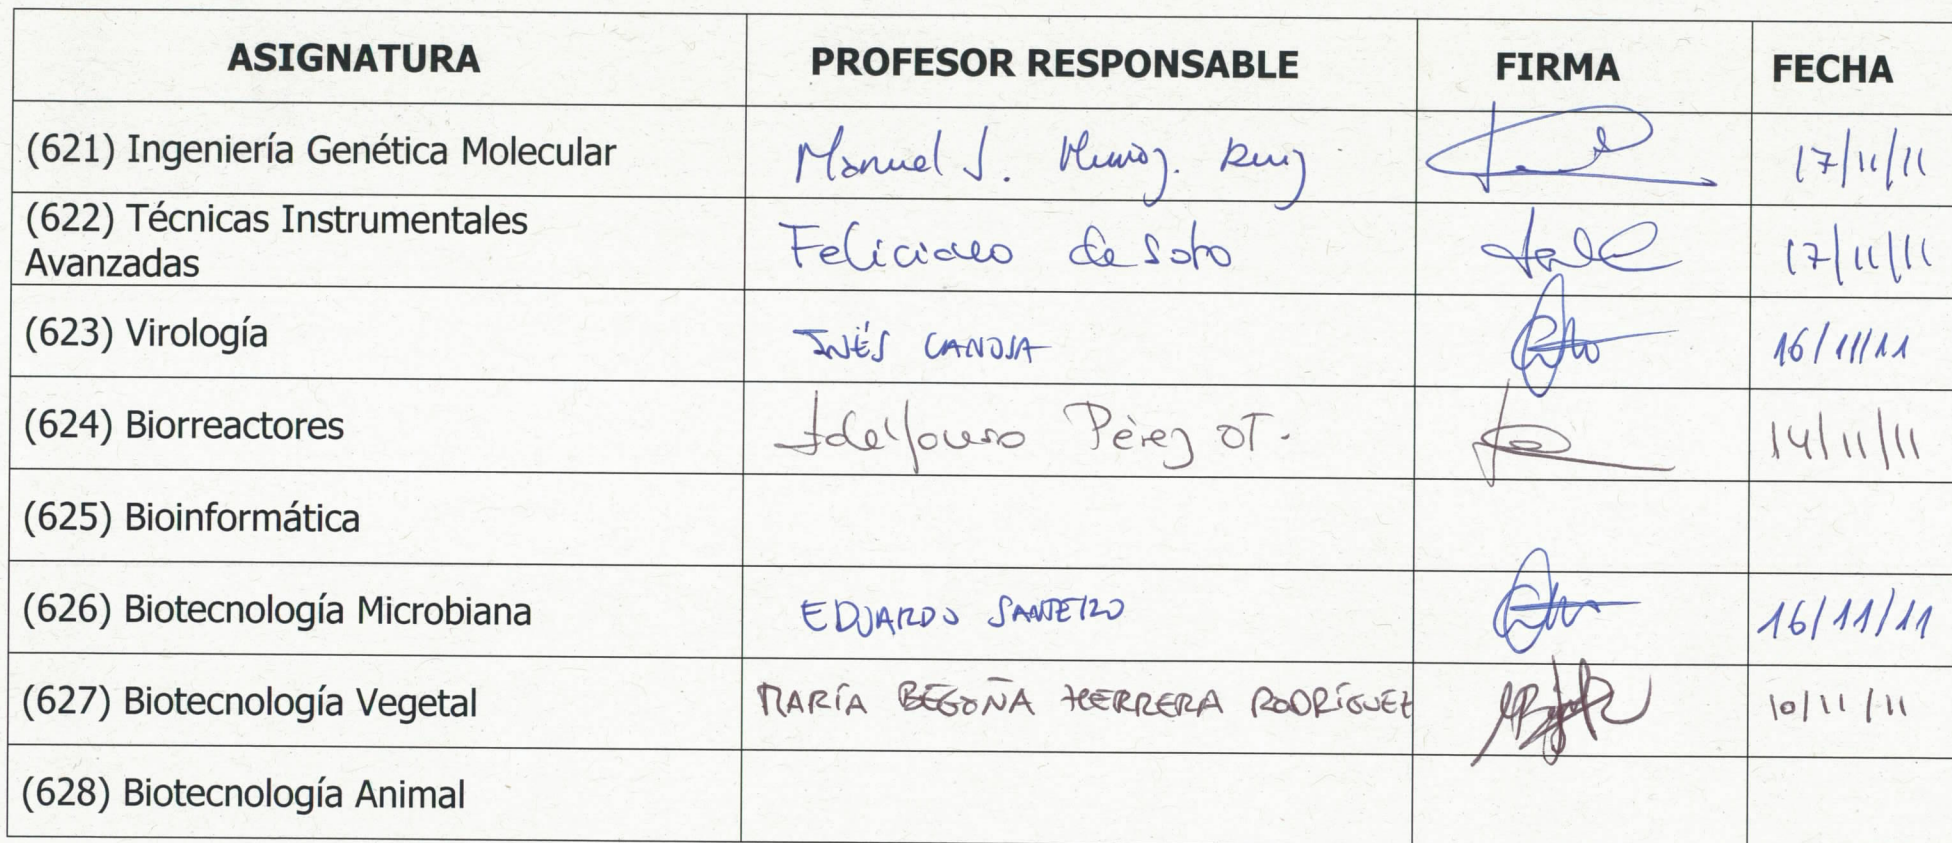 ASIGNATURA PROFESOR RESPONSABLE FIRMA FECHA
(621) Ingeniería Genética Molecular Manuel J. Muñoz. Ruiz 17/11/11
(622) Técnicas Instrumentales
Avanzadas Feliciano de Soto 17/11/11
(623) Virología INÉS CANOSA 16/11/11
(624) Biorreactores Ildelfonso Pérez OT. 14/11/11
(625) Bioinformática
(626) Biotecnología Microbiana EDUARDO SANTERO 16/11/11
(627) Biotecnología Vegetal MARÍA BEGOÑA HERRERA RODRÍGUEZ 10/11/11
(628) Biotecnología Animal